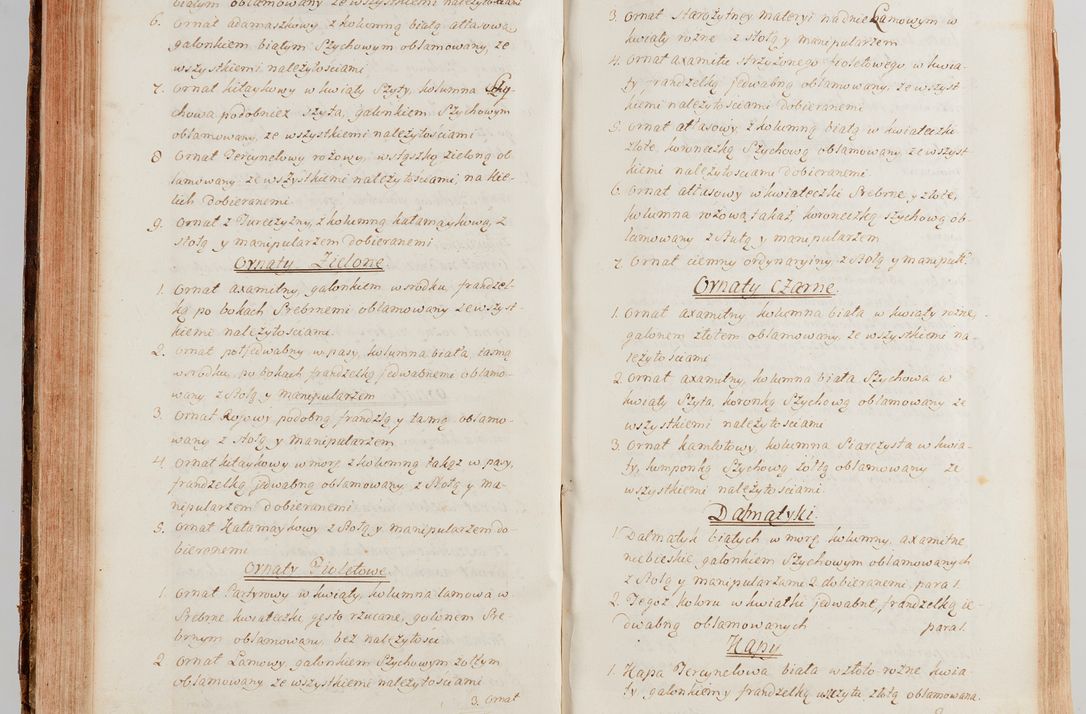 białym oblamowany ze wszystkiemi należytościami
6. Ornat adamaszkowy z kolumną białą atłasową
galonkiem białym Szychowym oblamowany, ze
wszystkiemi należytościami
7. Ornat kitaykowy w kwiaty Szyty, kolumna Szy-
chowa podobnież szyta, galonkiem Szychowym
oblamowany, ze wszystkiemi należytościami
8 Ornat Tercynelowy rożowy, wstąszką zieloną ob-
lamowany ze wszystkiemi należytościami, na Kie-
lich dobieranemi
9. Ornat z Turczyzny, z kolumną katamaykową, z
stołą y manipularzem dobieranemi
Ornaty Zielone
1. Ornat axamitny, galonkiem wsrodku frandzel-
ką po bokach Srebrnemi oblamowany ze wszyst-
kiemi należytościami
2. Ornat połjedwabny w pasy, kolumna biała, tasmą
wsrodku, po bokach frandzelką jedwabnemi oblamo-
wany z Stołą y manipularzem
3. Ornat Rojowy podobną frandzlą y tasmą oblamo-
wany z Stołą y Manipularzem
4. Ornat kitaykowy w morę z kolumną takąż w pasy,
frandzelką jedwabną oblamowany z Stołą y ma-
nipularzem dobieranemi
5. Ornat Katamaykowy z Stołą y manipularzem do-
bieranemi
Ornaty Fioletowe
1. Ornat Partyrowy w kwiaty, kolumna lamowa w
Srebrne kwiateczki gęsto rzucane, galonem Sre-
brnym oblamowany, bez należytości
2 Ornat Lamowy galonkiem Szychowym żołtym
oblamowany ze wszystkiemi należytościami
3. Ornat
3. Ornat Starożytney materyi na dnie Lamowym w
kwiaty rożne z Stołą y manipularzem
4. Ornat axamitu strzyżonego fioletowego w kwia-
ty frandzelką jedwabną oblamowany, ze wszyst-
kiemi należytościami dobieranemi
5. Ornat atłasowy, z kolumną białą w kwiateczki
złote, koroneczką Szychową oblamowany ze wszyst-
kiemi należytościami dobieranemi
6. Ornat atłasowy w kwiateczki Srebrne, y złote,
kolumna rożowa takaż, koroneczką szychową ob-
lamowany z Stułą y manipularzem
7. Ornat ciemny ordynaryiny z Stołą y manipul:
Ornaty Czarne
1. Ornat axamitny kolumna biała w kwiaty rożne,
galonem złotem oblamowany, ze wszystkiemi na-
leżytościami
2. Ornat axamitny, kolumna biała Szychowa w
kwiaty Szyta, koronką Szychową oblamowany ze
wszystkiemi należytościami
3. Ornat kamlotowy, kolumna Siarczysta w kwia-
ty, kamponką Szychową żołtą oblamowany ze
wszystkiemi należytościami
Dalmatyki
1. Dalmatyk białych w morę, kolumny, axamitne
niebieskie, galonkiem Szychowym oblamowanych
z Stołą y manipularzami 2 dobieranemi, para 1.
2. Tegoż koloru w kwiatki jedwabne, frandzelką je-
dwabną oblamowanych para 1.
Kapy
1. Kapa Tercynelowa biała w złoto rożne kwia-
ty, galonkiem y frandzelką złotą oblamowana.